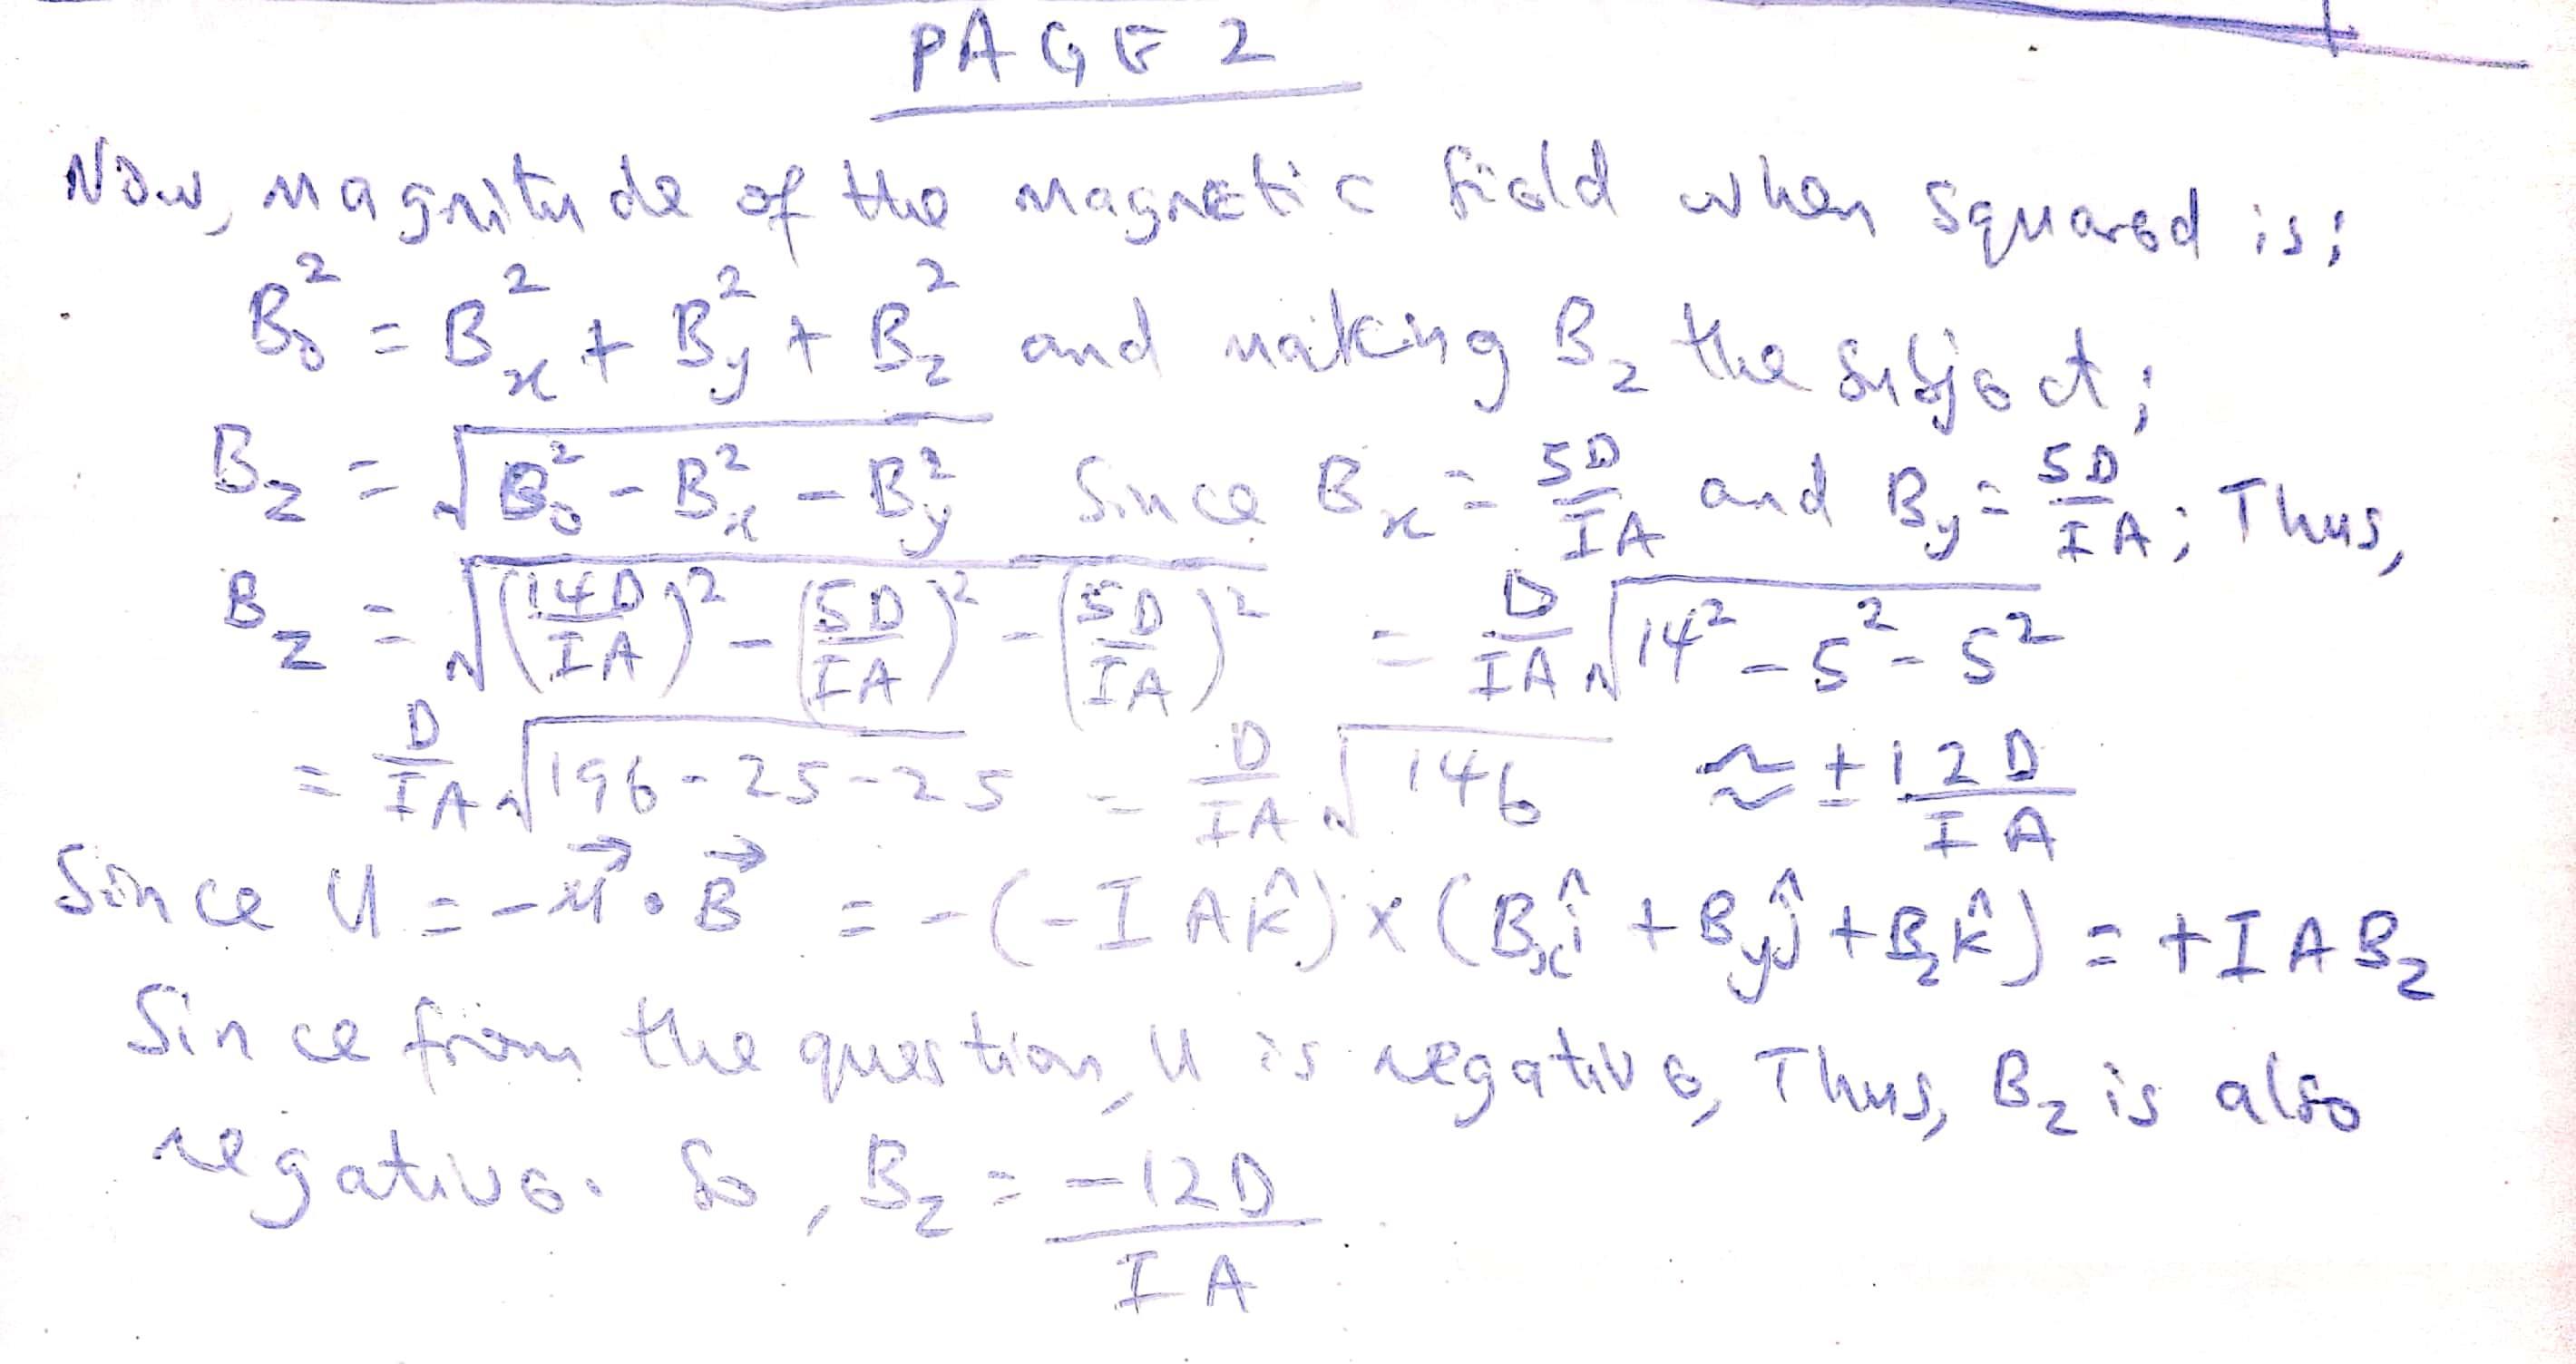 PAGE 2
Now, magnitude of the magnetic field when squared is;
B₀² = Bₓ² + B_y² + B_z² and making B_z the subject;
B_z = √(B₀² - Bₓ² - B_y²) Since Bₓ = 5D/IA and B_y = 5D/IA; Thus,
B_z = √((14D/IA)² - (5D/IA)² - (5D/IA)²) = D/IA √(14² - 5² - 5²)
= D/IA √(196 - 25 - 25) = D/IA √146 ≈ ± 12D/IA
Since U = -μ⃗ • B⃗ = -(-IAk̂) × (Bₓî + B_yĵ + B_zk̂) = +IAB_z
Since from the question, U is negative, Thus, B_z is also
negative. So, B_z = -12D/IA